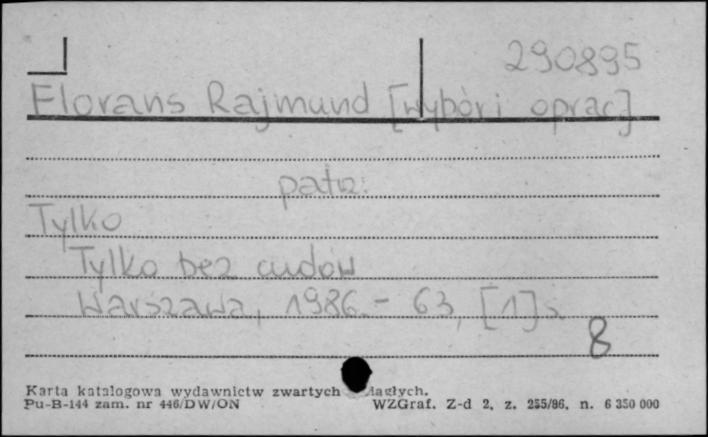 290895
Florans Rajmund [wybór i oprac]
patrz:
Tylko
Tylko bez cudów
Warszawa, 1986. - 63, [1] s.
8
Karta katalogowa wydawnictw zwartych
Pu-B-144 zam. nr 446/DW/ON WZGraf. Z-d 2, z. 255/86, n. 6 350 000